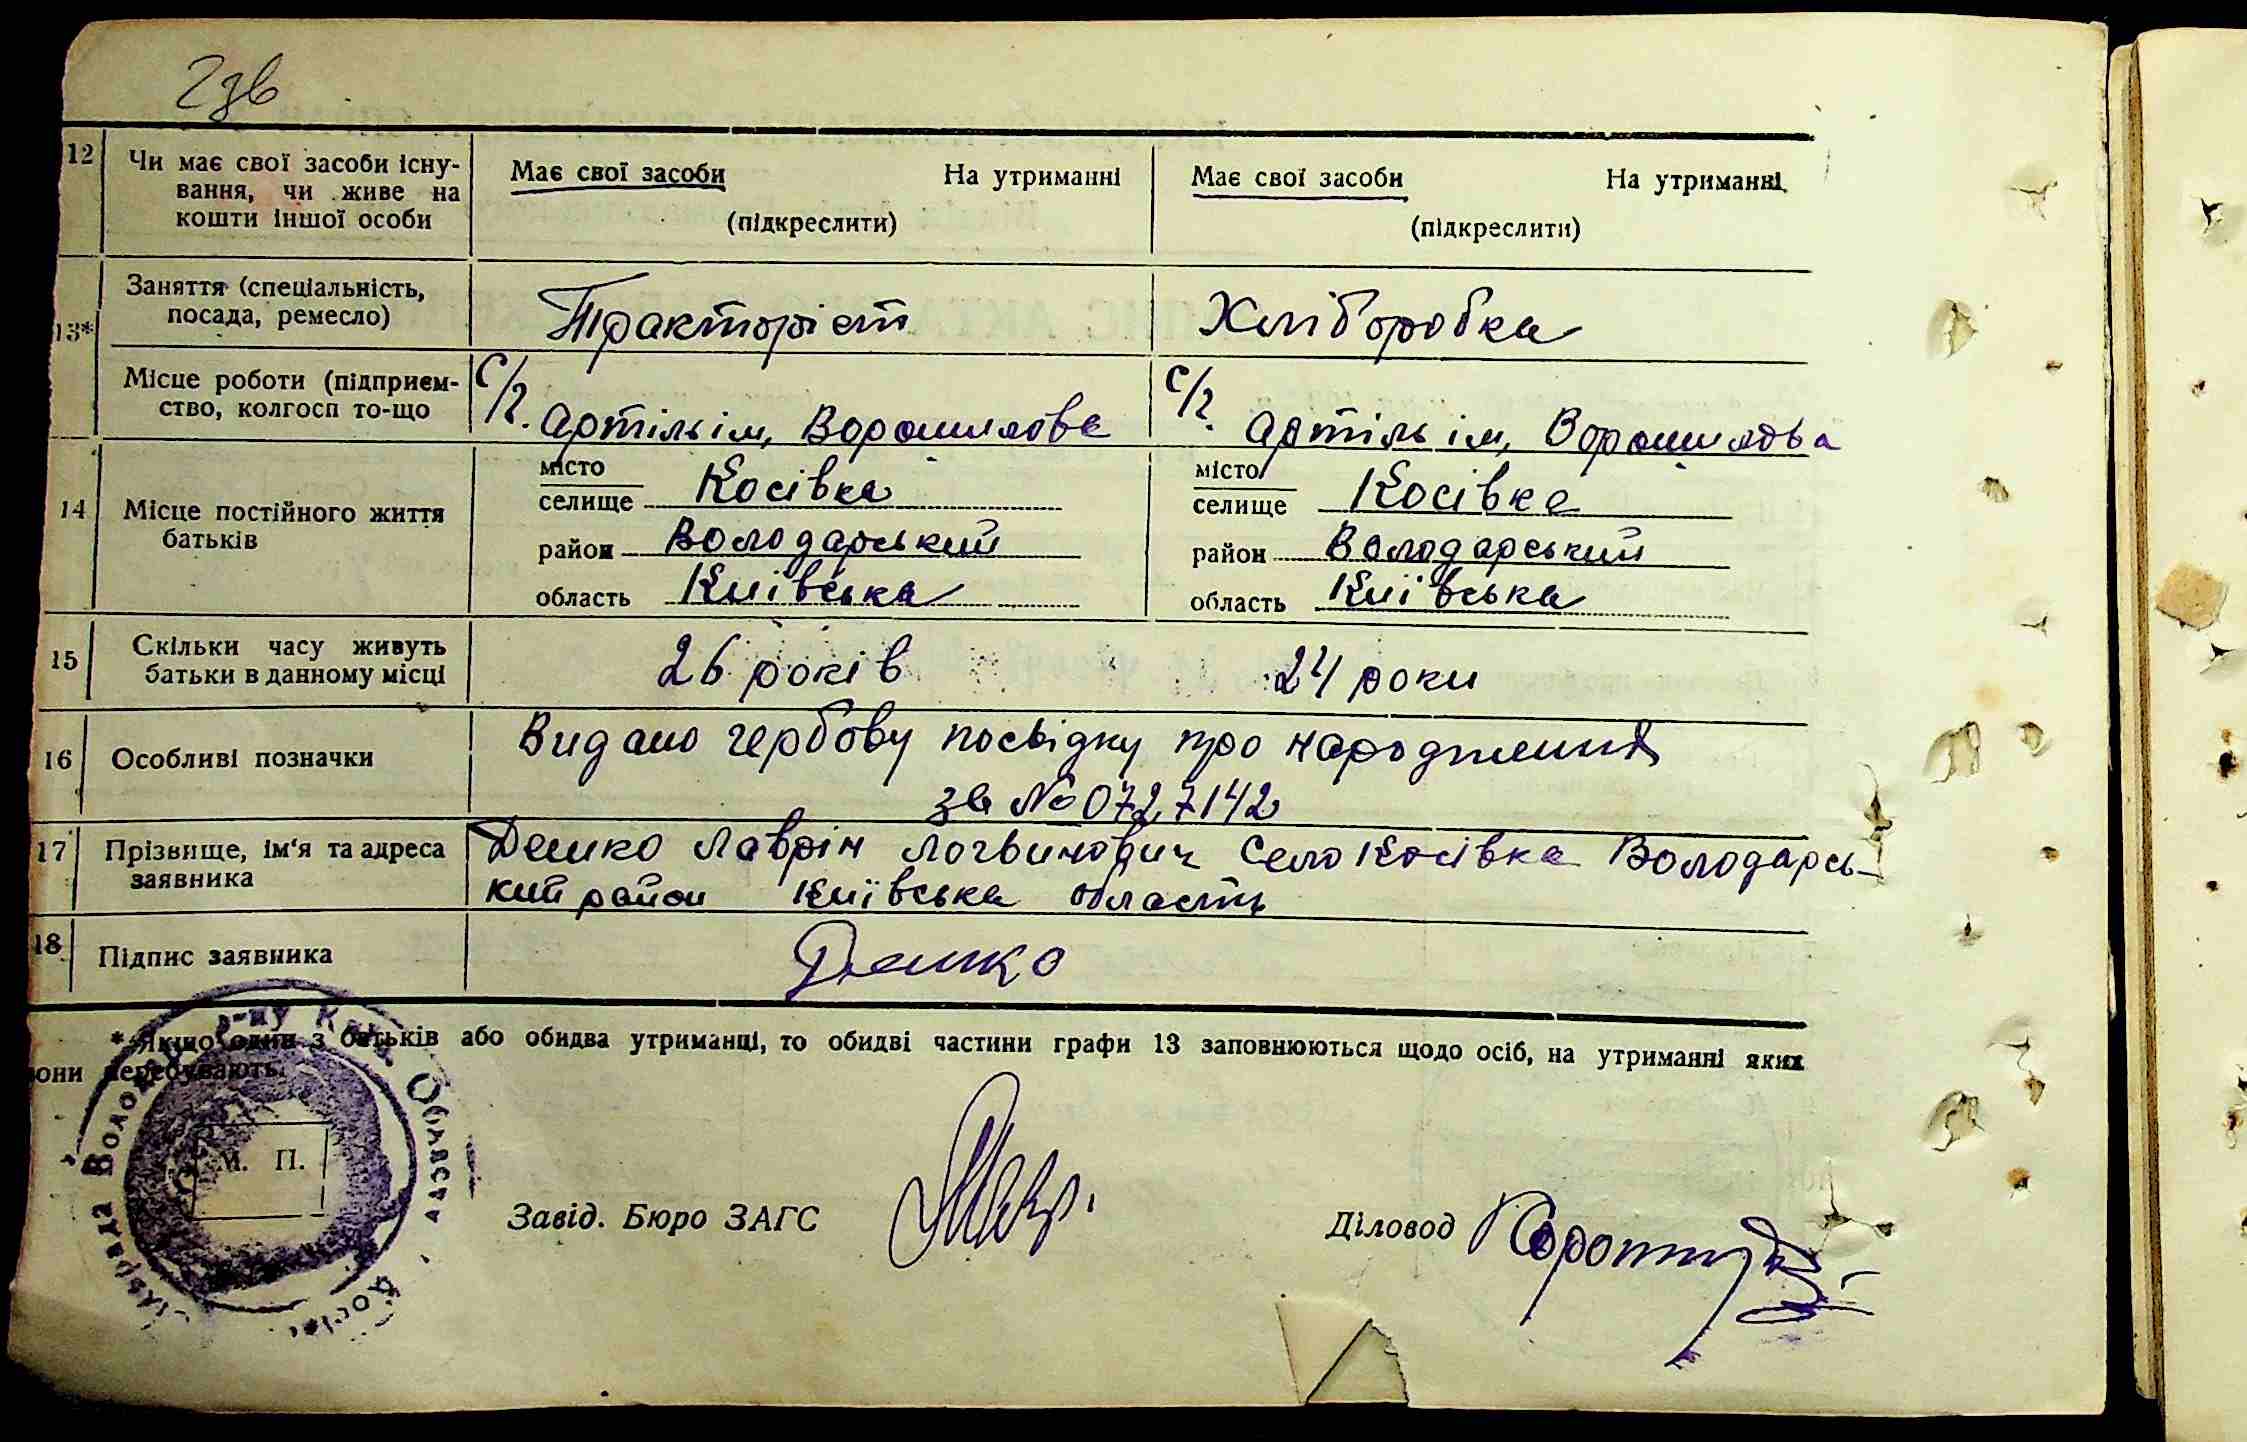 2зв
12 Чи має свої засоби існу- Має свої засоби На утриманні Має свої засоби На утриманні
вання, чи живе на
кошти іншої особи (підкреслити) (підкреслити)
13* Заняття (спеціальність,
посада, ремесло) Тракторіст Хліборобка
Місце роботи (підприєм- С/г. С/г.
ство, колгосп то-що артіль ім, Ворошилова артіль ім, Ворошилова
14 Місце постійного життя
батьків
місто місто
селище Косівка селище Косівка
район Володарський район Володарський
область Київська область Київська
15 Скільки часу живуть
батьки в данному місці 26 років 24 роки
16 Особливі позначки Видано гербову посвідку про народження
за № 0727142
17 Прізвище, ім'я та адреса Демко Лаврін Логвинович Село Косівка Володарсь-
заявника кий район Київська область
18 Підпис заявника Демко
* Якщо один з батьків або обидва утриманці, то обидві частини графи 13 заповнюються щодо осіб, на утриманні яких
они перебувають.
р-ну Області
М. П.
Завід. Бюро ЗАГС Діловод